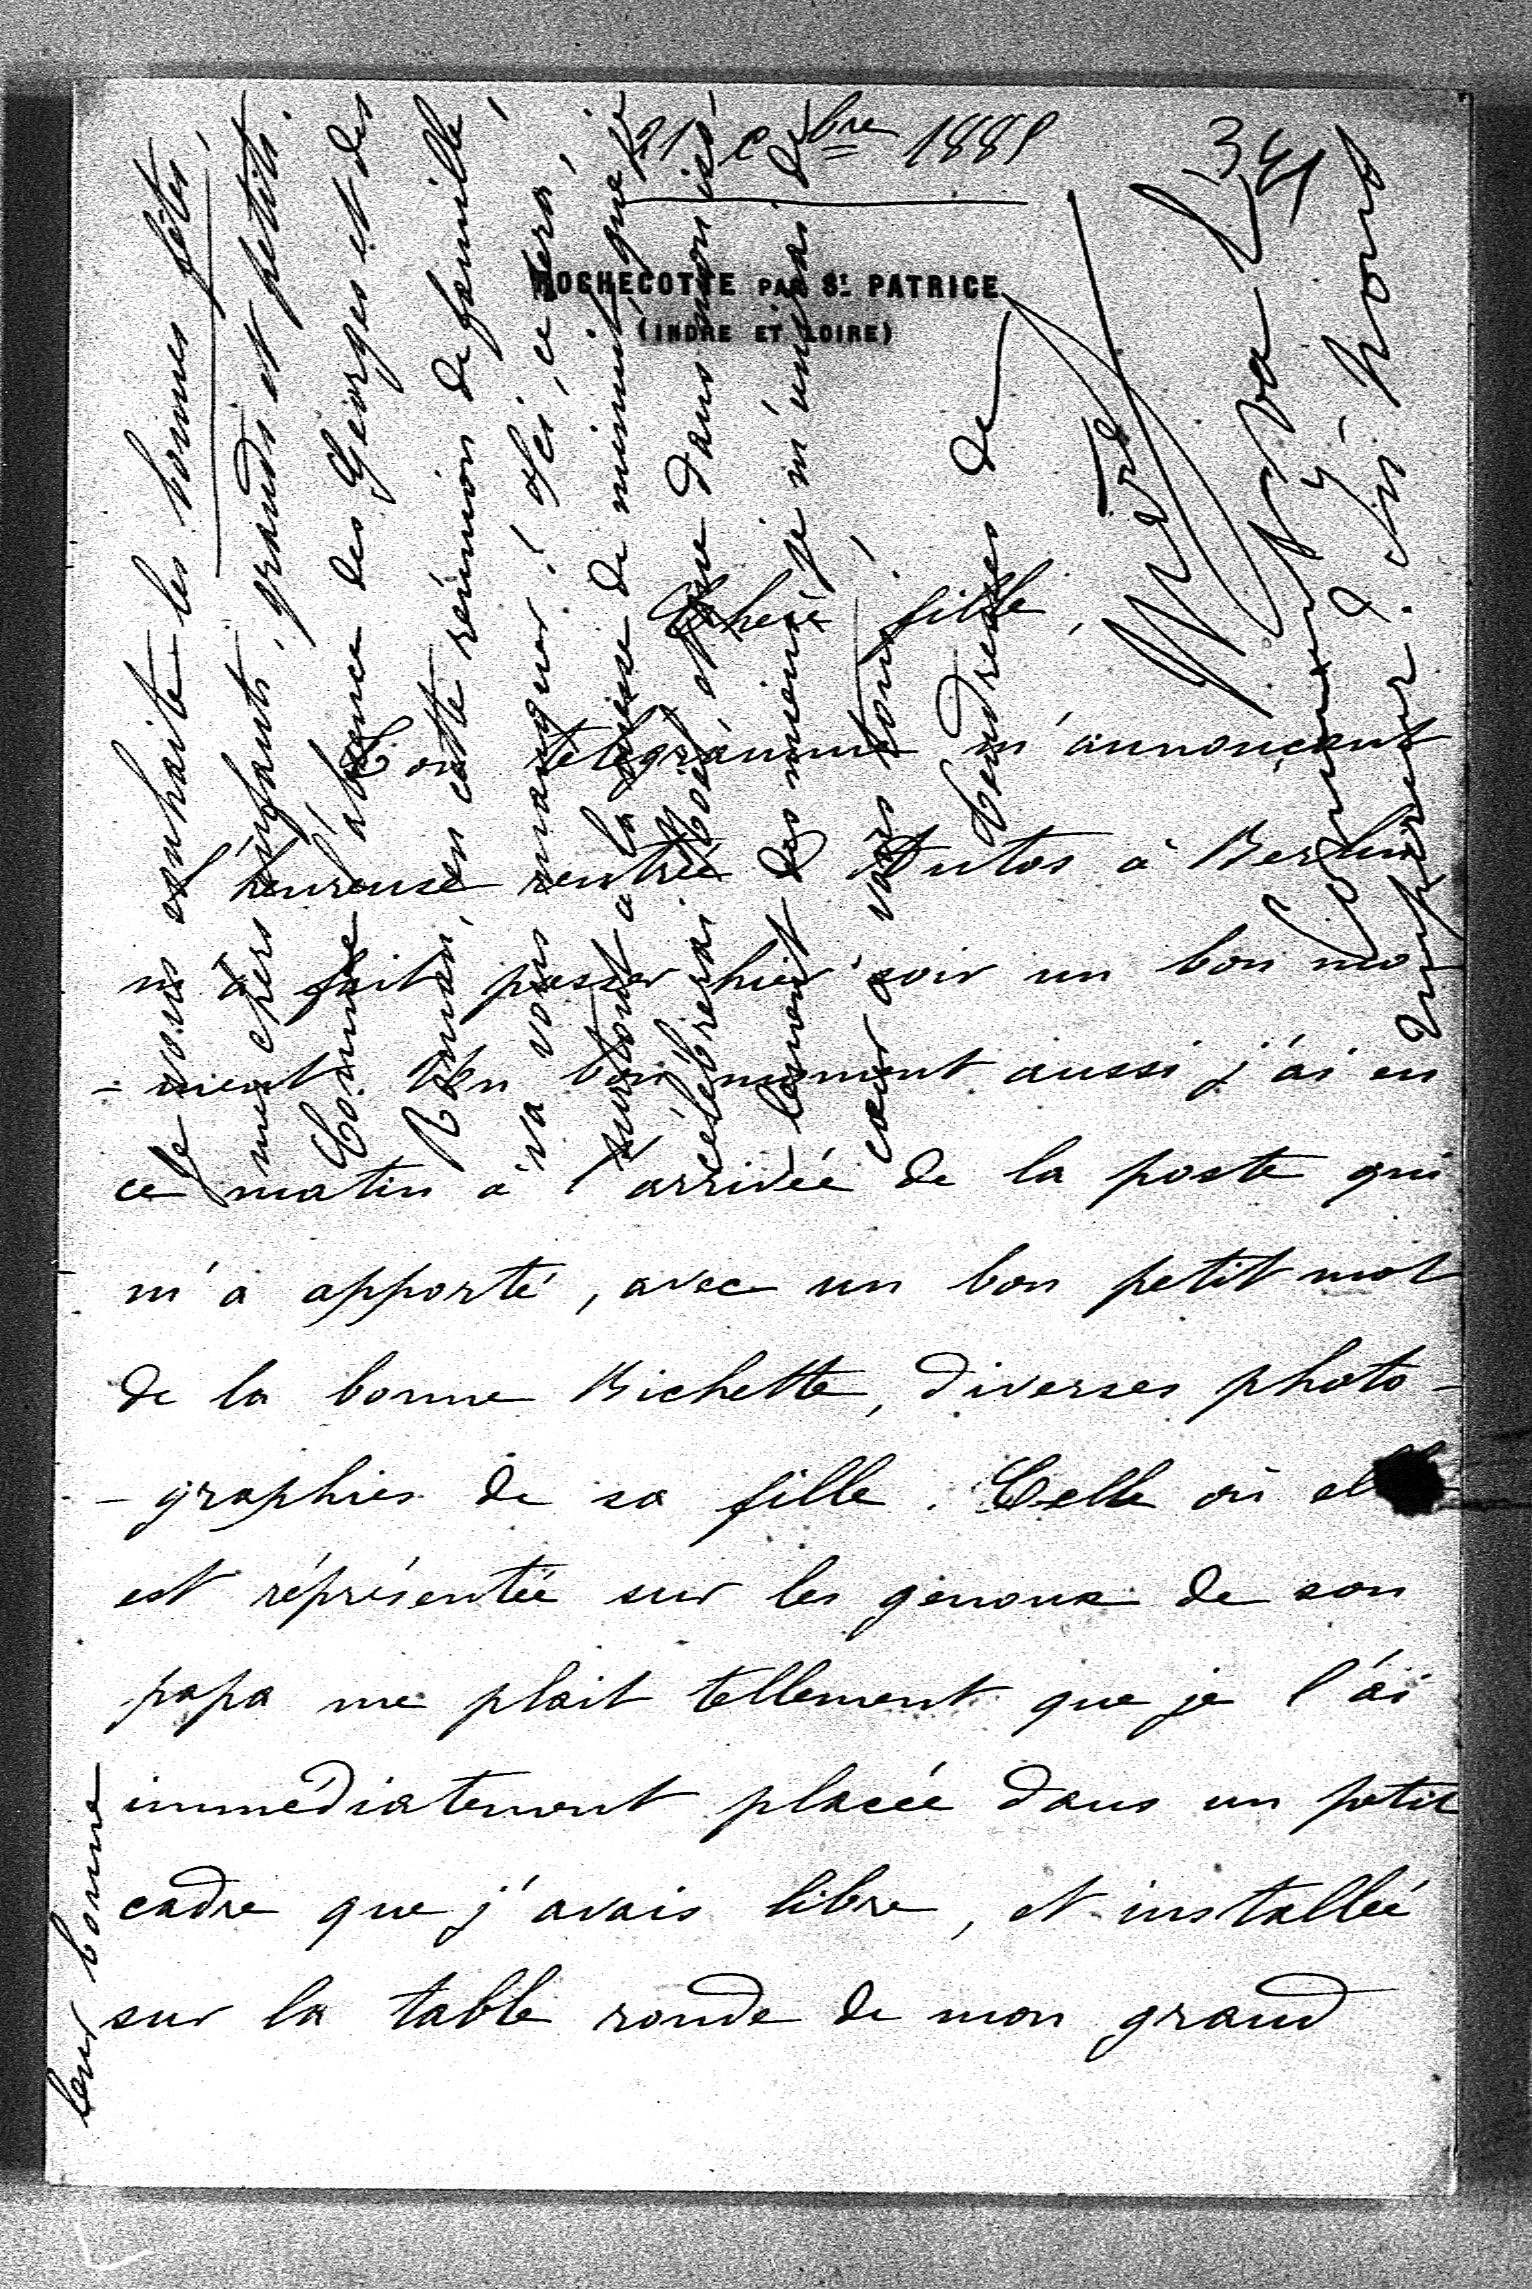 21 Xbre 1889
ROCHECOTTE PAR ST. PATRICE
(INDRE ET LOIRE)
Chère fille,
Ton télégramme m'annonçant
l'heureuse rentrée d'Antos à Berlin
m'a fait passer hier soir un bon mo
- ment. Un bon moment aussi j'ai eu
ce matin à l'arrivée de la poste qui
m'a apporté, avec un bon petit mot
de la bonne Bichette, diverses photo-
- graphies de sa fille. Celle où elle
est réprésentée sur les genoux de son
papa me plait tellement que je l'ai
immédiatement placée dans un petit
cadre que j'avais libre, et installée
sur la table ronde de mon grand
Je vous souhaite les bonnes fêtes,
mes chers enfants, grands et petits.
Comme l'absence des Georges et des
Roman, en cette réunion de famille,
va vous manquer! Ici, ce sera,
surtout à la messe de minuit que je
célébrerai Noël, et que dans mon isolé
- lement des miens, je m'unirai de
cœur à vous tous,
Tendresses de
Mère
Comment va
l'Impératrice?
leur bonne